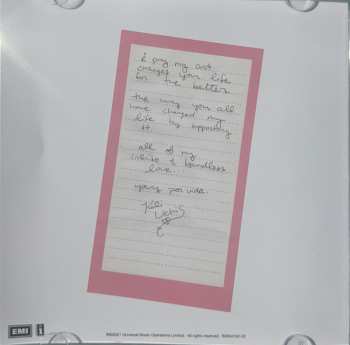 & pray my art
changes your life
for the better
the way you all
have changed my
life by supporting
it
all of my
infinite & boundless
love...
yours por vida.
Kali
Uchis
EMI
Universal Music Operations Limited. All rights reserved.